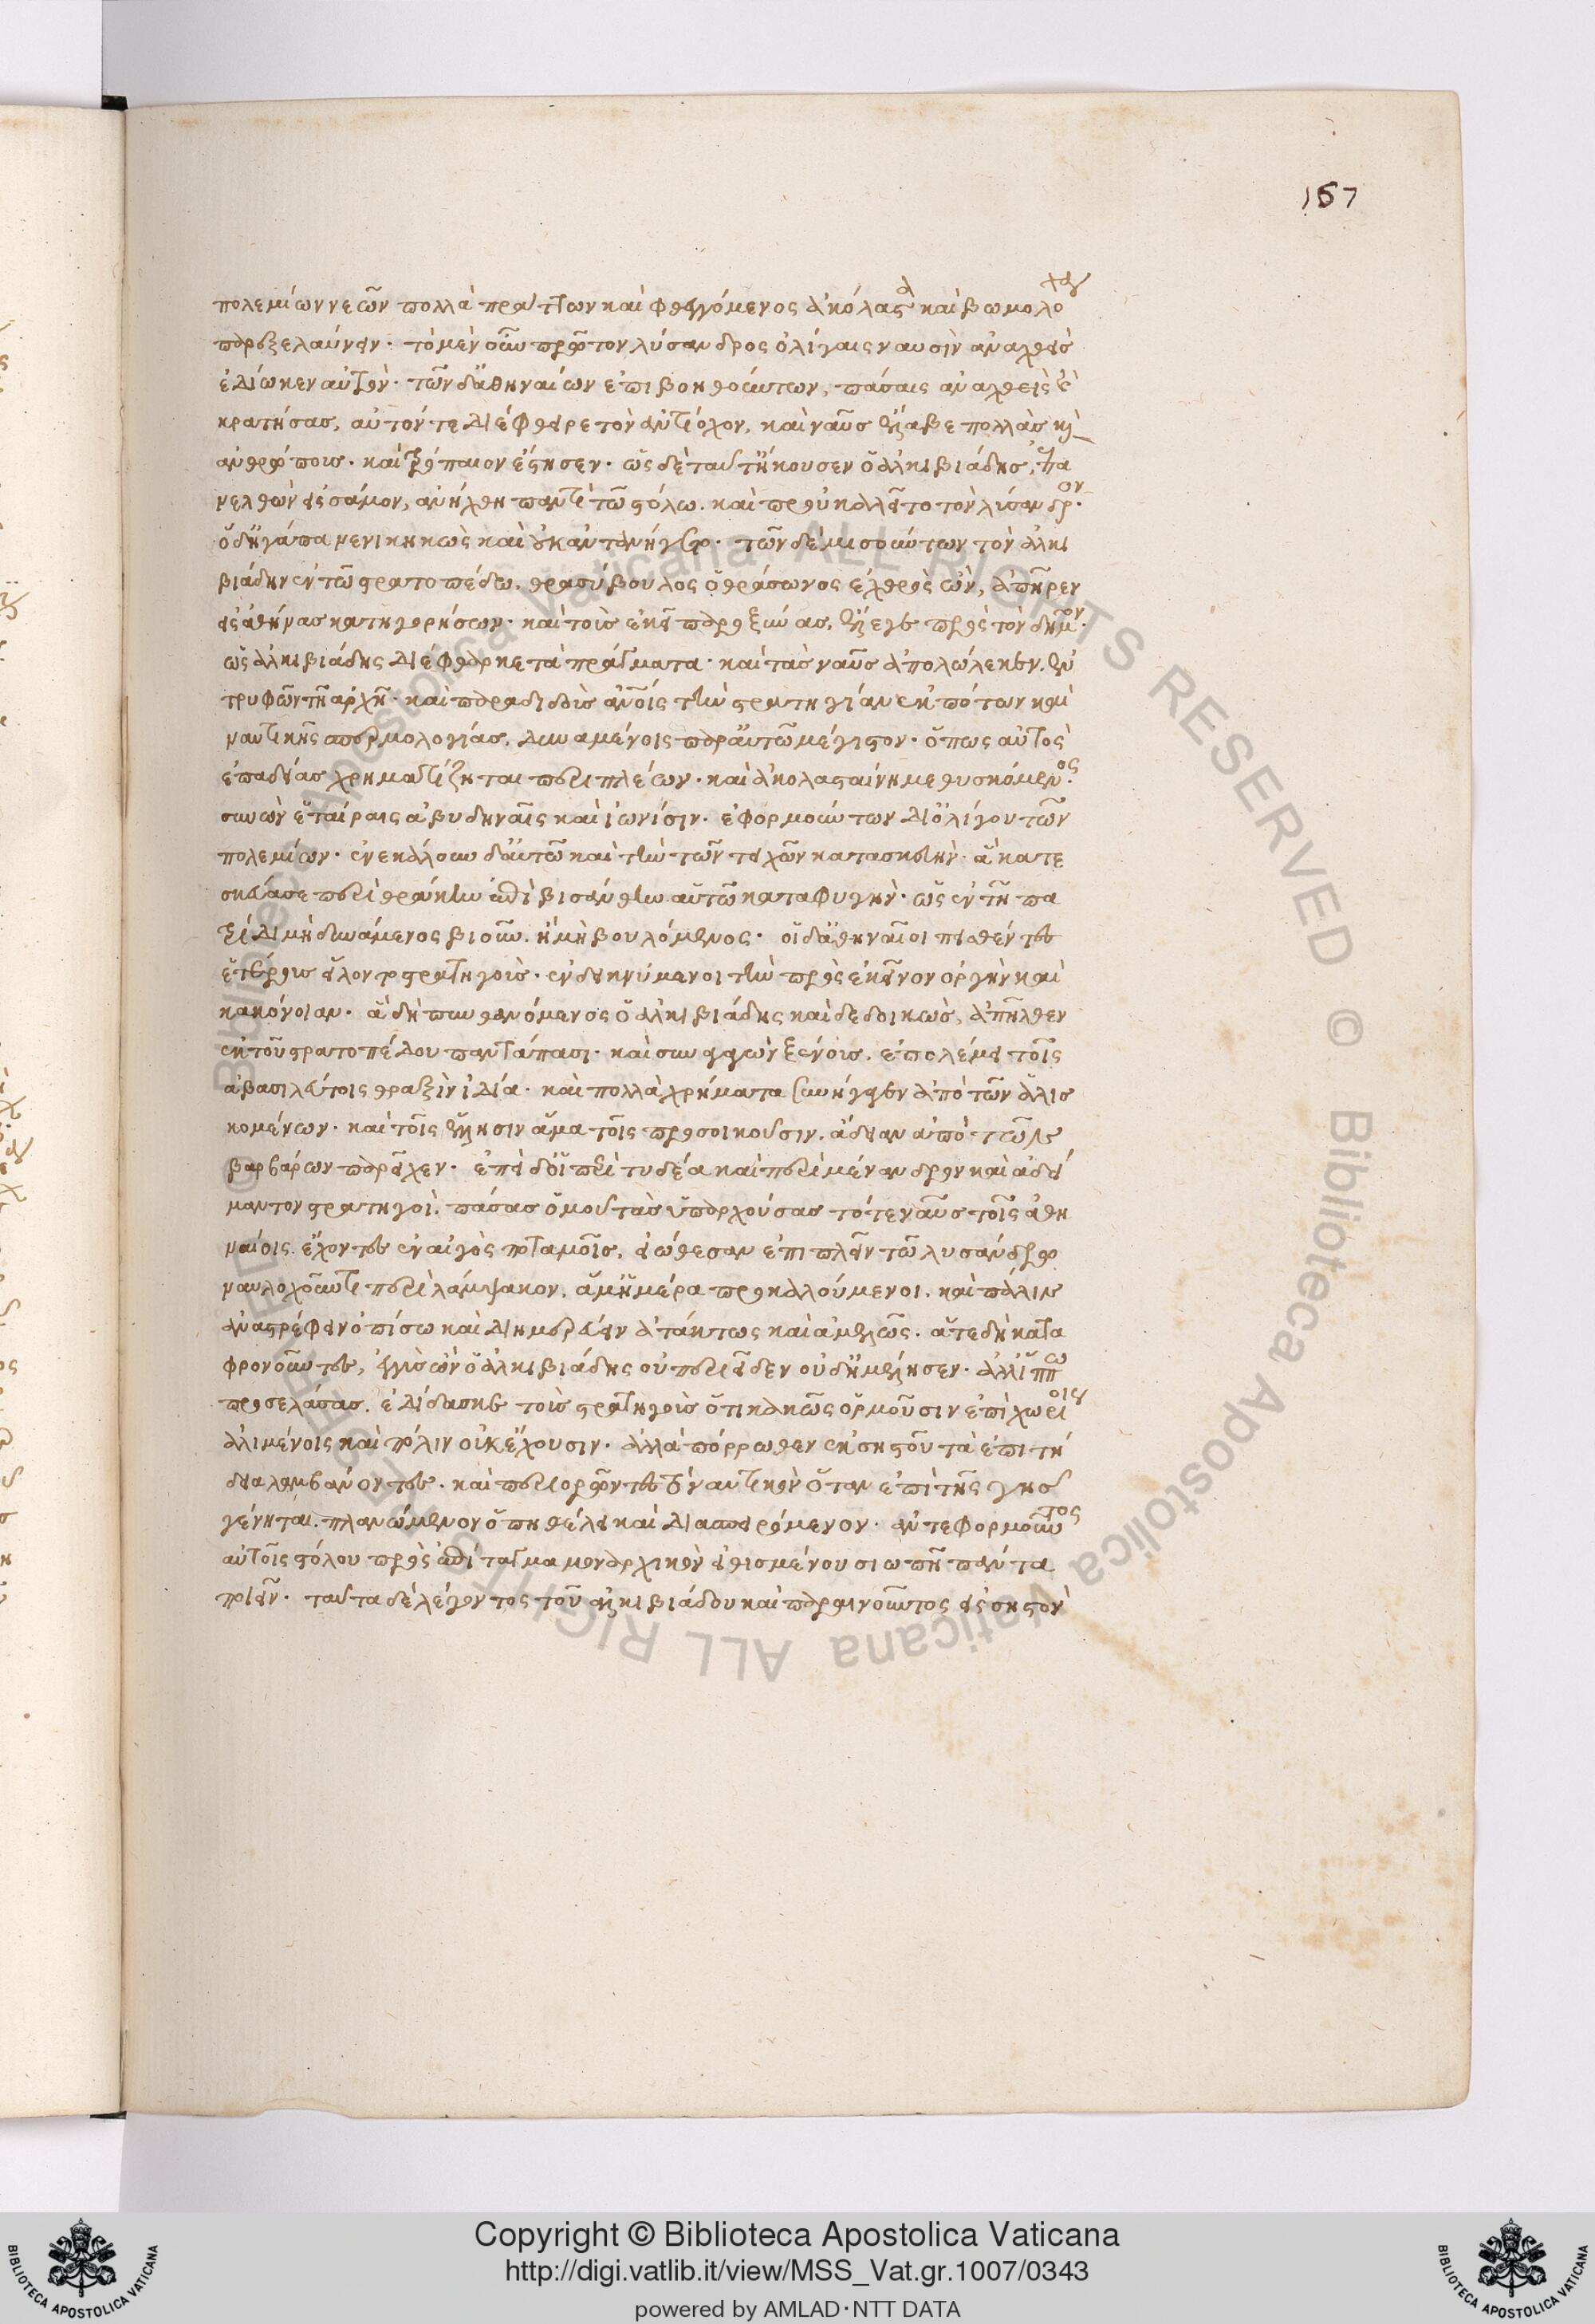 157
πολεμίων νεῶν πολλὰ πράττων καὶ φθεγγόμενος ἀκόλαστα καὶ βωμολόχα
παρεξελαύνειν. τὸ μὲν οὖν πρῶτον λύσανδρος ὀλίγαις ναυσὶν ἀναχθεὶς
ἐδίωκεν αὐτόν. τῶν δ' ἀθηναίων ἐπιβοηθούντων, πάσαις ἀναχθεὶς καὶ
κρατήσας, αὐτόν τε διέφθειρε τὸν ἀντίοχον, καὶ ναῦς ἔλαβε πολλὰς καὶ
ἀνθρώπους. καὶ τρόπαιον ἔστησεν. ὡς δὲ ταῦτ' ἤκουσεν ὁ ἀλκιβιάδης, ἐπα
νελθὼν εἰς σάμον, ἀνήχθη παντὶ τῶ στόλω. καὶ προὐκαλεῖτο τὸν λύσανδρον.
ὁ δ' ἠγάπα νενικηκὼς καὶ οὐκ ἀντανήγετο. τῶν δὲ μισούντων τὸν ἀλκι
βιάδην ἐν τῶ στρατοπέδω, θρασύβουλος ὁ θράσωνος ἐχθρὸς ὢν, ἀπῆρεν
εἰς ἀθήνας κατηγορήσων. καὶ τοὺς ἐκεῖ παροξύνας, ἔλεγε πρὸς τὸν δῆμον.
ὡς ἀλκιβιάδης διέφθαρκε τὰ πράγματα. καὶ τὰς ναῦς ἀπολώλεκεν, ἐν
τρυφῶν τῆ ἀρχῆ. καὶ παραδιδοὺς αὐτοῖς τὴν στρατηγίαν ἐκ πότων καὶ
ναυτικῆς σπερμολογίας, δυναμένοις παρ' αὐτῶ μέγιστον. ὅπως αὐτὸς
ἐπ' ἀδείας χρηματίζηται περιπλέων. καὶ ἀκολασταίνη μεθυσκόμενος.
συνὼν ἑταίραις ἀβυδηναῖς καὶ ἰωνίσιν. ἐφορμούντων δι' ὀλίγου τῶν
πολεμίων. ἐνεκάλουν δ' αὐτῶ καὶ τὴν τῶν τειχῶν κατασκευήν. ἃ κατε
σκεύασε περὶ θράκην ἐπὶ βισάνθην αὑτῶ καταφυγήν. ὡς ἐν τῆ πα
τρίδι μὴ δυνάμενος βιοῦν. ἢ μὴ βουλόμενος. οἱ δ' ἀθηναῖοι πεισθέντες
ἑτέρους εἵλοντο στρατηγούς. ἐνδεικνύμενοι τὴν πρὸς ἐκεῖνον ὀργὴν καὶ
κακόνοιαν. ἃ δὴ πυνθανόμενος ὁ ἀλκιβιάδης καὶ δεδοικὼς, ἀπῆλθεν
ἐκ τοῦ στρατοπέδου παντάπασι. καὶ συναγαγὼν ξένους, ἐπολέμει τοῖς
ἀβασιλεύτοις θραξὶν ἰδία. καὶ πολλὰ χρήματα συνήγαγεν ἀπὸ τῶν ἁλισ
κομένων. καὶ τοῖς ἕλλησιν ἅμα τοῖς προσοικοῦσιν, ἄδειαν ἀπὸ τῶν
βαρβάρων παρεῖχεν. ἐπεὶ δ' οἱ περὶ τυδέα καὶ περὶ μένανδρον καὶ ἀδεί
μαντον στρατηγοὶ, πάσας ὁμοῦ τὰς ὑπαρχούσας τότε ναῦς τοῖς ἀθη
ναίοις ἔχοντες ἐν αἰγὸς ποταμοῖς, εἰώθεσαν ἐπιπλεῖν τῶ λυσάνδρω
ναυλοχοῦντι περὶ λάμψακον, ἅμ' ἡμέρα προκαλούμενοι. καὶ πάλιν
ἀναστρέφειν ὀπίσω καὶ διημερεύειν ἀτάκτως καὶ ἀμελῶς. ἅτε δὴ κατα
φρονοῦντες, ἐγγὺς ὢν ὁ ἀλκιβιάδης οὐ περιεῖδεν οὐδ' ἠμέλησεν. ἀλλ' ἵππω
προσελάσας, ἐδίδασκε τοὺς στρατηγοὺς ὅτι κακῶς ὁρμοῦσιν ἐπὶ χωρίοις
ἀλιμένοις καὶ πόλιν οὐκ ἔχουσιν. ἀλλὰ πόρρωθεν ἐκ σηστοῦ τὰ ἐπιτή
δεια λαμβάνοντες. καὶ περιορῶντες τὸ ναυτικὸν ὅταν ἐπὶ τῆς γῆς
γένηται, πλανώμενον ὅπη θέλει καὶ διασπειρόμενον. ἀντεφορμοῦντος
αὐτοῖς στόλου πρὸς ἐπίταγμα μοναρχικὸν εἰθισμένου σιωπῆ πάντα
ποιεῖν. ταῦτα δὲ λέγοντος τοῦ ἀλκιβιάδου καὶ παραινοῦντος εἰς σηστὸν
Copyright © Biblioteca Apostolica Vaticana
http://digi.vatlib.it/view/MSS_Vat.gr.1007/0343
powered by AMLAD·NTT DATA
BIBLIOTECA APOSTOLICA VATICANA
BIBLIOTECA APOSTOLICA VATICANA
Biblioteca Apostolica Vaticana ALL RIGHTS RESERVED © Biblioteca Apostolica Vaticana ALL RIGHTS RESERVED ©